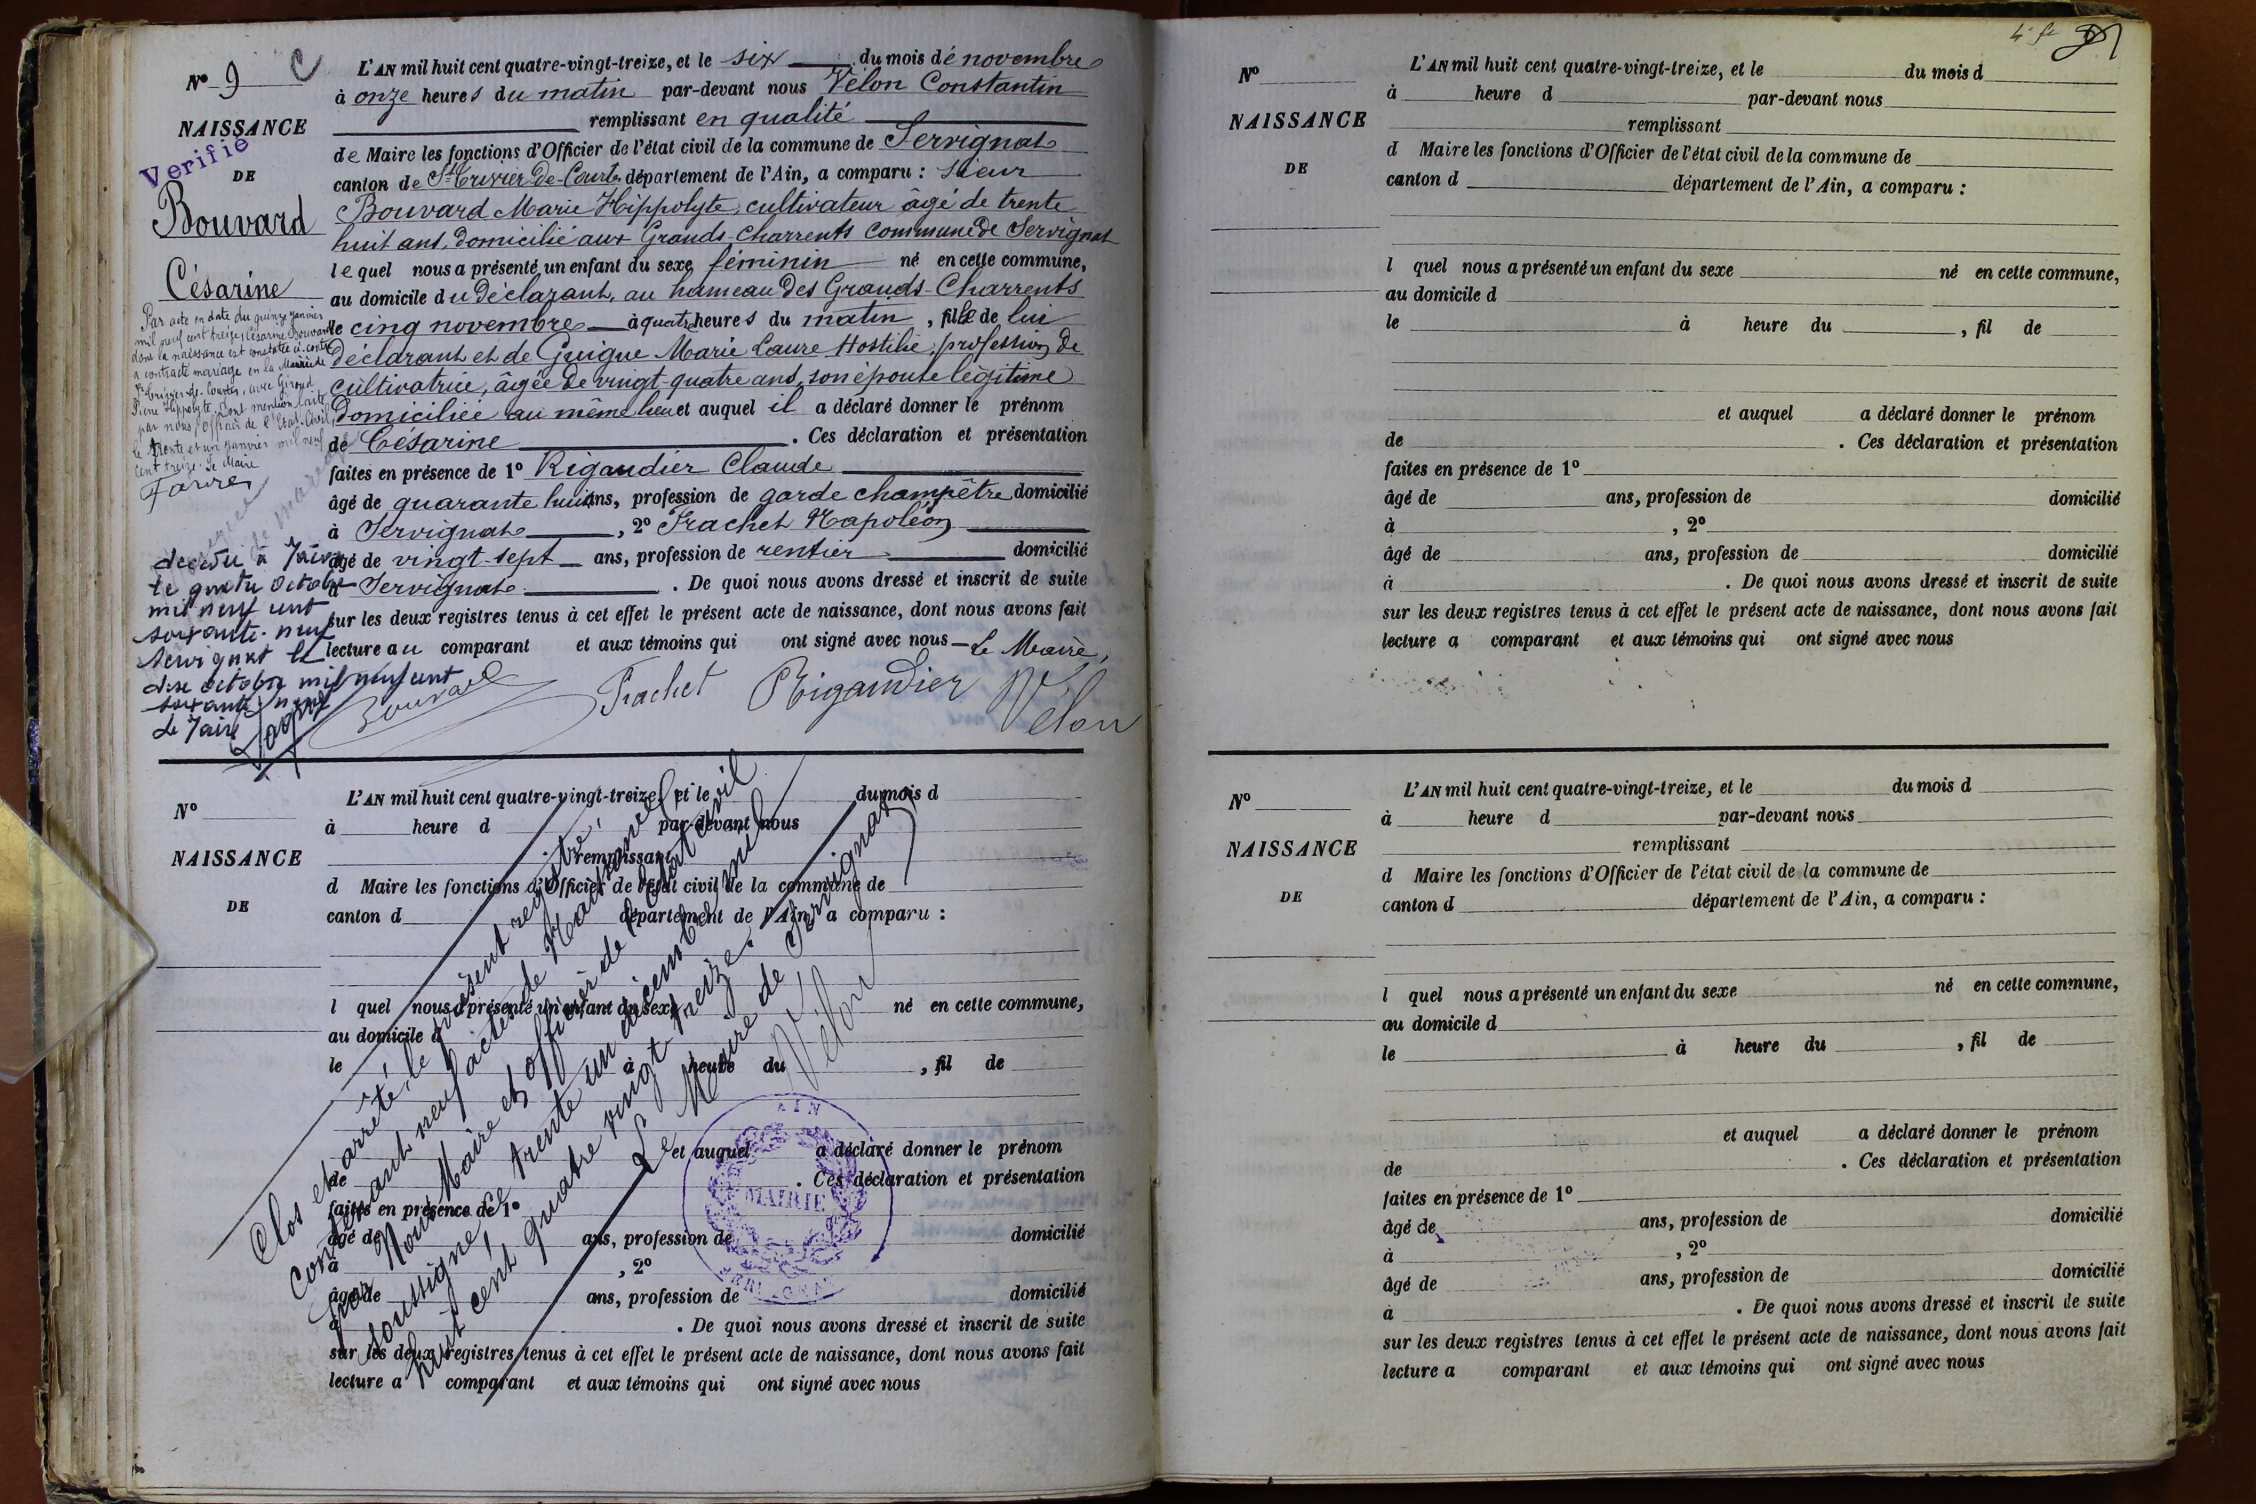 N° 9 C
NAISSANCE
Verifié
DE
Bouvard
Césarine
Par acte en date du quinze janvier
mil neuf cent treize, Césarine Bouvard
dont la naissance est constatée ci-contre
a contracté mariage en la Mairie de
St Trivier-de-Courtes, avec Giroud
Pierre Hippolyte, dont mention faite
par nous, Officier de l'Etat-Civil,
le trente et un janvier mil neuf
cent treize. Le Maire
Favre
décédée à
le quatre octobre
mil neuf cent
soixante-neuf
Servignat le
octobre mil neuf cent
soixante neuf
Le Maire
L'AN mil huit cent quatre-vingt-treize, et le six du mois de novembre
à onze heures du matin par-devant nous Vélon Constantin
remplissant en qualité
de Maire les fonctions d'Officier de l'état civil de la commune de Servignat
canton de St Trivier-de-Courtes département de l'Ain, a comparu : sieur
Bouvard Marie Hippolyte, cultivateur âgé de trente
huit ans, domicilié aux Grands-Charrents commune de Servignat
lequel nous a présenté un enfant du sexe féminin né en cette commune,
au domicile du déclarant, au hameau des Grands-Charrents
le cinq novembre à quatre heures du matin, fille de lui
déclarant et de Guigue Marie Laure Hostilie, profession de
cultivatrice, âgée de vingt-quatre ans, son épouse légitime
domiciliée au même lieu et auquel il a déclaré donner le prénom
de Césarine . Ces déclaration et présentation
faites en présence de 1° Rigaudier Claude
âgé de quarante huit ans, profession de garde champêtre domicilié
à Servignat , 2° Frachet Napoléon
âgé de vingt-sept ans, profession de rentier domicilié
à Servignat . De quoi nous avons dressé et inscrit de suite
sur les deux registres tenus à cet effet le présent acte de naissance, dont nous avons fait
lecture au comparant et aux témoins qui ont signé avec nous — Le Maire,
Bouvard Frachet Rigaudier Vélon
N°
NAISSANCE
DE
L'AN mil huit cent quatre-vingt-treize, et le du mois d
à heure d par-devant nous
remplissant
d Maire les fonctions d'Officier de l'état civil de la commune de
canton d département de l'Ain, a comparu :
l quel nous a présenté un enfant du sexe né en cette commune,
au domicile d
le à heure du , fil de
et auquel a déclaré donner le prénom
de . Ces déclaration et présentation
faites en présence de 1°
âgé de ans, profession de domicilié
à , 2°
âgé de ans, profession de domicilié
à . De quoi nous avons dressé et inscrit de suite
sur les deux registres tenus à cet effet le présent acte de naissance, dont nous avons fait
lecture a comparant et aux témoins qui ont signé avec nous
Clos et arrêté, le présent registre,
contenant neuf actes de Naissance,
par Nous Maire et officier de l'Etat civil
soussigné, le trente un décembre mil
huit cent quatre vingt treize.
Le Maire de Servignat
Vélon
AIN
MAIRIE
SERVIGNAT
4e fe
N°
NAISSANCE
DE
L'AN mil huit cent quatre-vingt-treize, et le du mois d
à heure d par-devant nous
remplissant
d Maire les fonctions d'Officier de l'état civil de la commune de
canton d département de l'Ain, a comparu :
l quel nous a présenté un enfant du sexe né en cette commune,
au domicile d
le à heure du , fil de
et auquel a déclaré donner le prénom
de . Ces déclaration et présentation
faites en présence de 1°
âgé de ans, profession de domicilié
à , 2°
âgé de ans, profession de domicilié
à . De quoi nous avons dressé et inscrit de suite
sur les deux registres tenus à cet effet le présent acte de naissance, dont nous avons fait
lecture a comparant et aux témoins qui ont signé avec nous
N°
NAISSANCE
DE
L'AN mil huit cent quatre-vingt-treize, et le du mois d
à heure d par-devant nous
remplissant
d Maire les fonctions d'Officier de l'état civil de la commune de
canton d département de l'Ain, a comparu :
l quel nous a présenté un enfant du sexe né en cette commune,
au domicile d
le à heure du , fil de
et auquel a déclaré donner le prénom
de . Ces déclaration et présentation
faites en présence de 1°
âgé de ans, profession de domicilié
à , 2°
âgé de ans, profession de domicilié
à . De quoi nous avons dressé et inscrit de suite
sur les deux registres tenus à cet effet le présent acte de naissance, dont nous avons fait
lecture a comparant et aux témoins qui ont signé avec nous